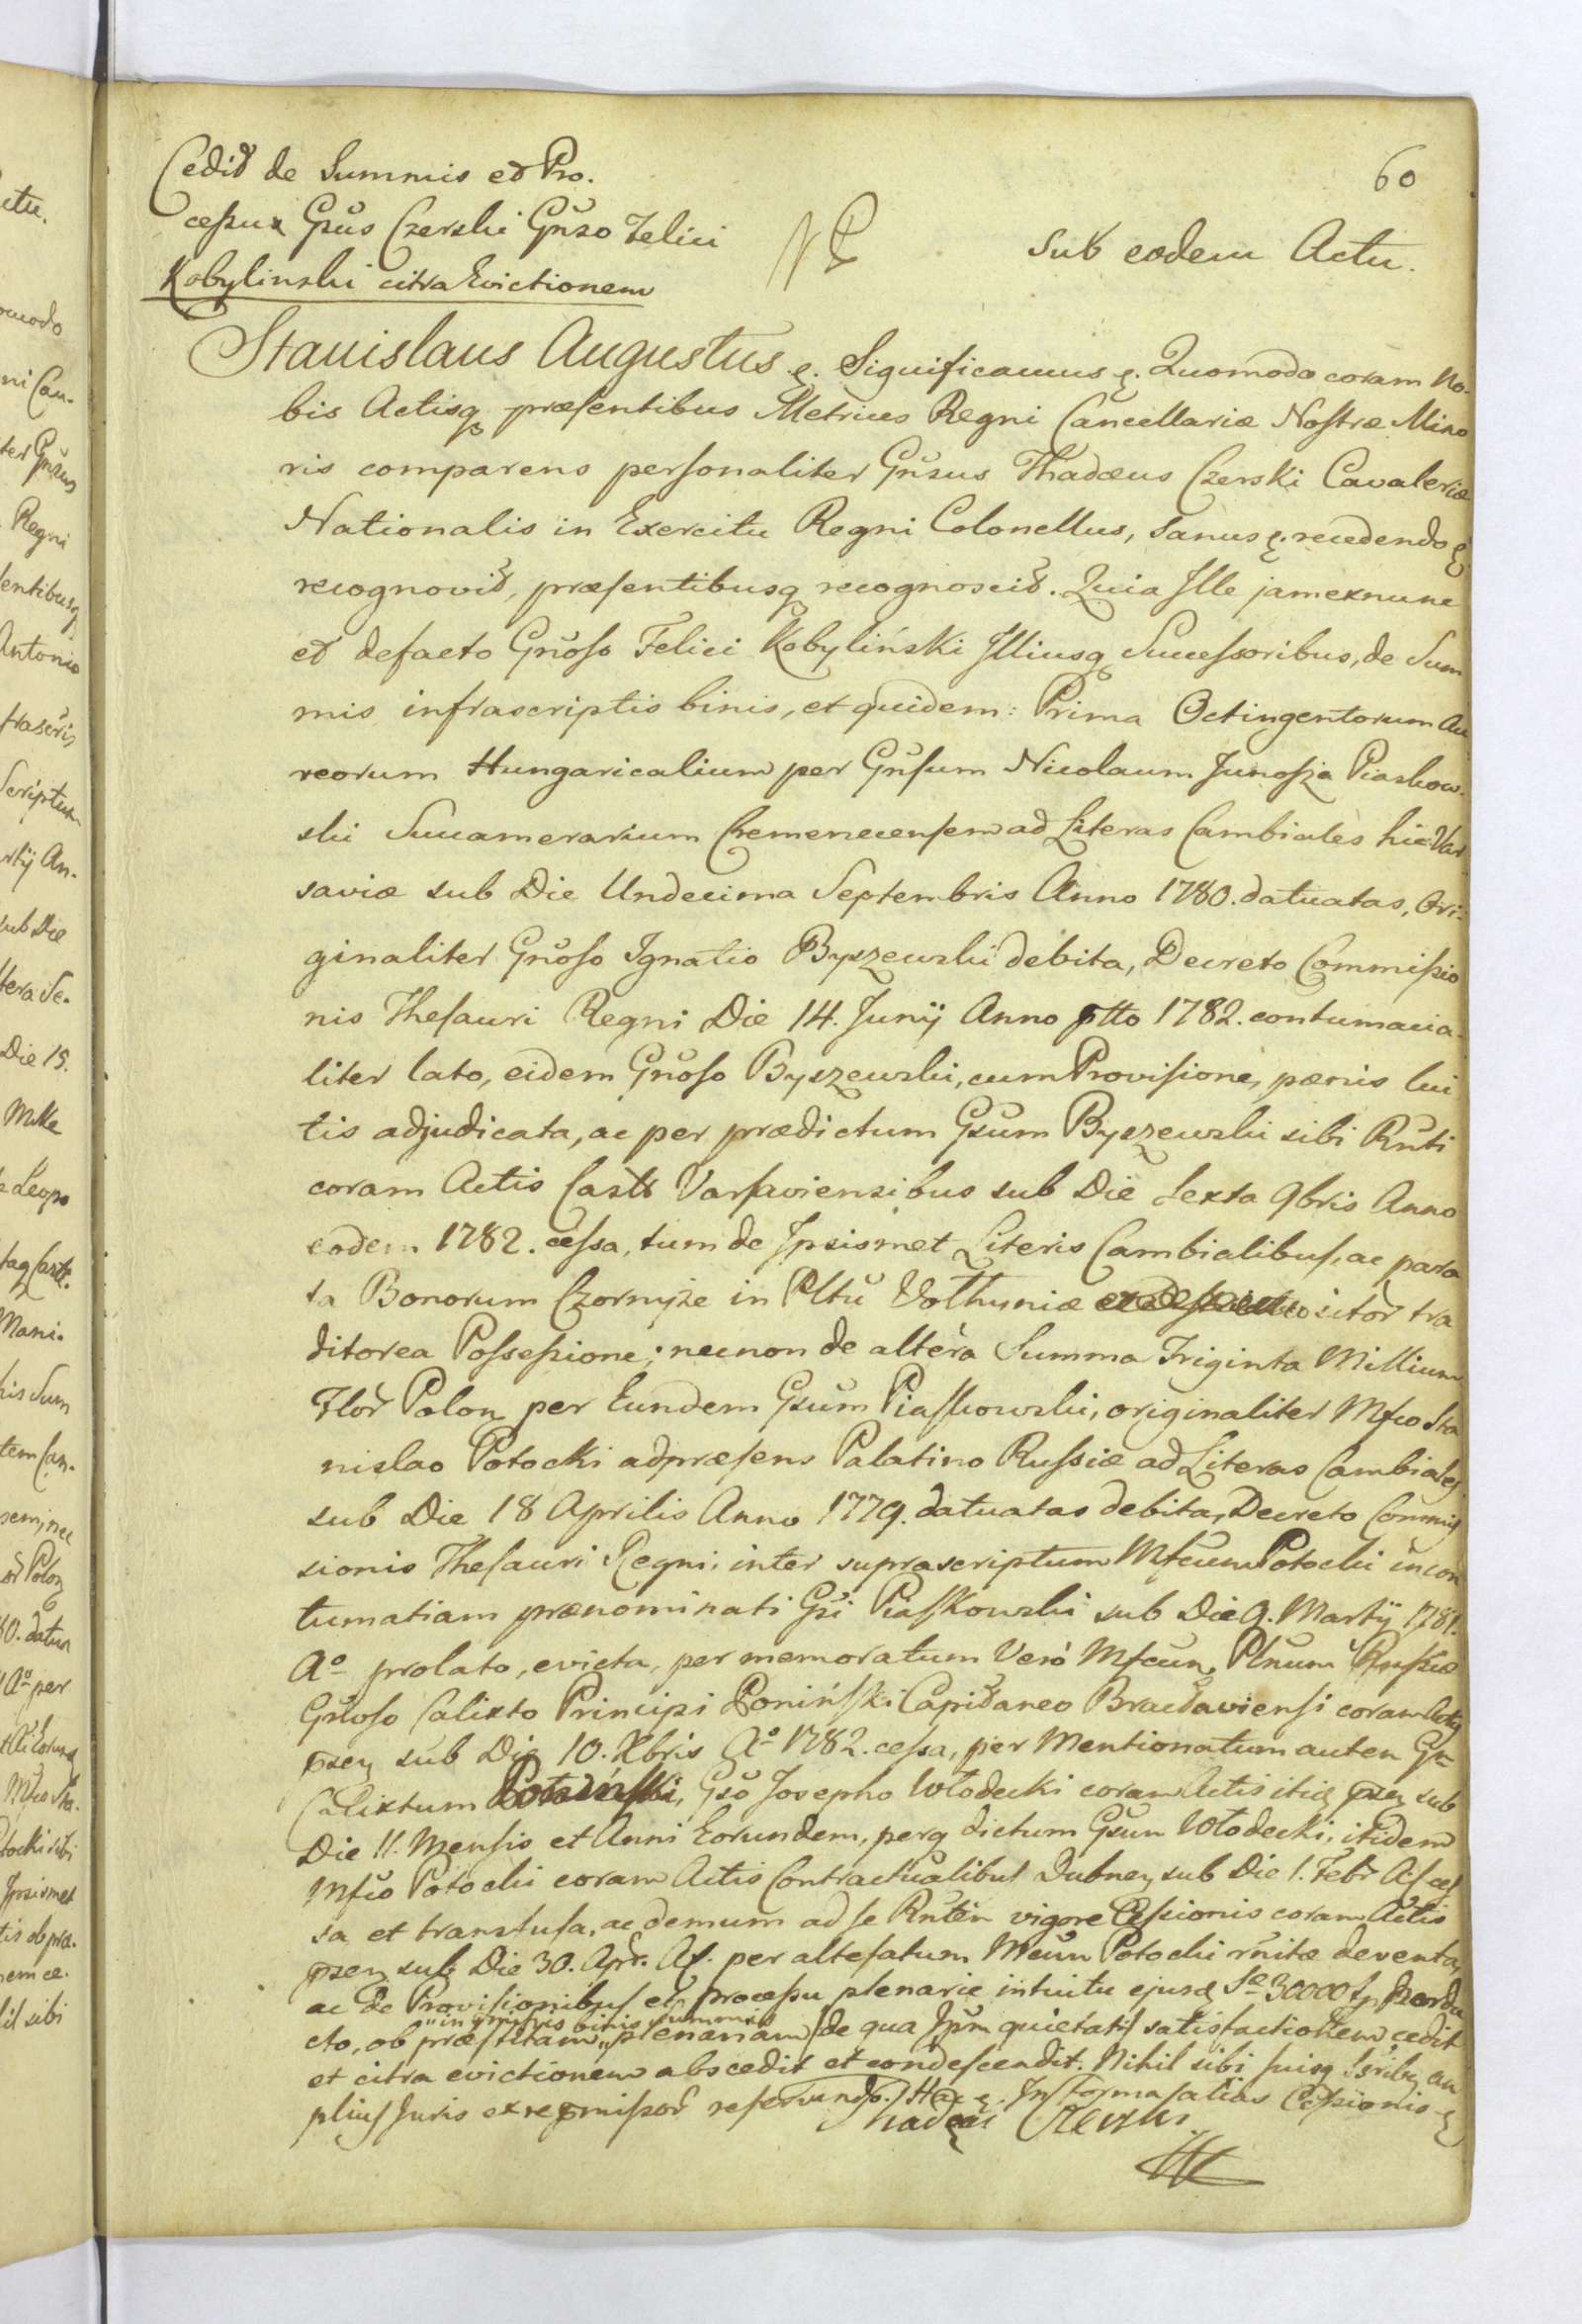 60
Cedit de Summis et Pro-
cessux Gsus Czerski Gnso Felici
Kobylinski citra Evictionem
Sub eodem Actu.
Stanislaus Augustus &. Significamus &. Quomodo coram No-
bis Actisq præsentibus Metrices Regni Cancellariæ Nostræ Mino
ris comparens personaliter Gnsus Thadæus Czerski Cavaleriæ
Nationalis in Exercitu Regni Colonellus, Sanus &. recedendo &
recognovit, præsentibusq recognoscit. Quia Ille jamexnunc
et defacto Gnoso Felici Kobyliński Illiusq Successoribus, de Sum
mis infrascriptis binis, et quidem: Prima Octingentorum Au
reorum Hungaricalium per Gnsum Nicolaum Junosza Piaskow-
ski Succamerarium Cremenecensem ad Literas Cambiales hic Var
saviæ sub Die Undecima Septembris Anno 1780. datuatas, Ori-
ginaliter Gnoso Ignatio Byszewski debita, Decreto Commissio
nis Thesauri Regni Die 14. Junij Anno ptto 1782. contumacia-
liter lato, eidem Gnoso Byszewski, cum Provisione, pænis lui
tis adjudicata, ac per prædictum Gsum Byszewski sibi Rnti
coram Actis Castr Varsaviensibus sub Die Sexta 9bris Anno
eodem 1782. cessa, tum de Ipsismet Literis Cambialibus, ac para
ta Bonorum Czornyże in Pltu Volhyniæ sitor tra
ditorea Possessione; necnon de altera Summa Triginta Millium
Flor Polon per Eundem Gsum Piaskowski, originaliter Mfco Sta
nislao Potocki adpræsens Palatino Russiæ ad Literas Cambiales
sub Die 18 Aprilis Anno 1779. datuatas debita, Decreto Commis
sionis Thesauri Regni inter suprascriptum Mfcum Potocki in con
tumatiam prænominati Gsi Piaskowski sub Die 9. Martij 1781.
Aº prolato, evicta, per memoratum Verò Mfcum Plnum Russiæ
Gnoso Calixto Principi Poniński Capitaneo Bracłaviensi coram Actis
psen sub Die 10. Xbris Aº 1782. cessa, per Mentionatum autem Gs
Calixtum Gso Josepho Włodecki coram Actis itid psen sub
Die 11. Mensis et Anni Eorundem, perq dictum Gsum Włodecki, itidem
Mfco Potocki coram Actis Contractualibus Dubnen sub Die 1. Febr A. ces
sa et transfusa, ac demum ad se Rntem vigore Cessionis coram Actis
psen sub Die 30. Apr. A. per altefatum Potocki rnitæ deventa,
ac de Provisionibus et processu plenarie intuitu ejusd Sæ 30000 f perdu
cto, ob præstitam "in præmissis binis Summis" plenariam (de qua Ipsum quietat) satisfactionem, cedit
et citra evictionem abscedit et condescendit. Nihil sibi suisq Ssribus am
plius Juris ex repmissor reservando. Hac &. In forma salias Cessionis &
Thadeus Czerski